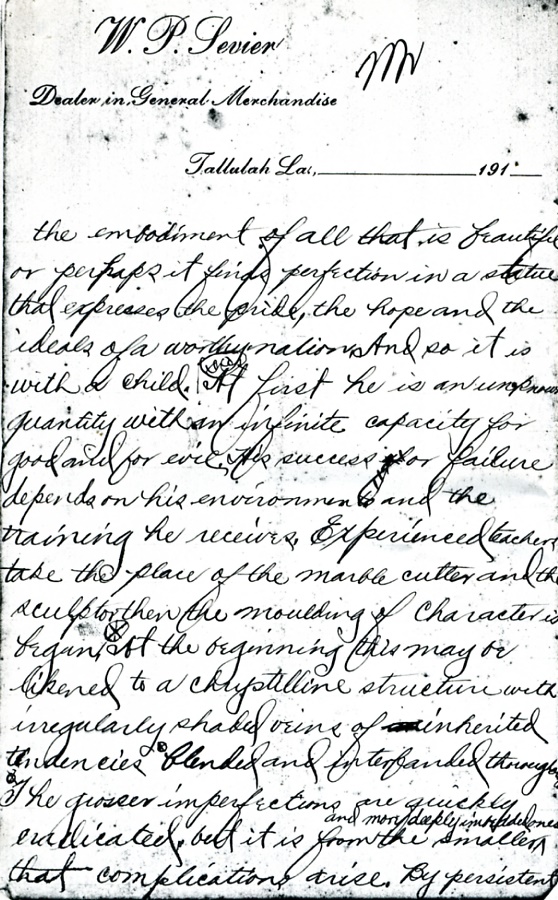 W. P. Sevier
Dealer in General Merchandise
Tallulah La., 191
the embodiment of all that is beautiful
or perhaps it finds perfection in a statue
that expresses the pride, the hope and the
ideals of a worthy nation. And so it is
with a child. At first he is an unknown
quantity with an infinite capacity for
good and for evil. His success or failure
depends on his environment and the
training he receives. Experienced teachers
take the place of the marble cutter and the
sculptor then the moulding of character is
began. At the beginning this may be
likened to a chrystelline structure with
irregularly shaded veins of inherited
tendencies blended and through
The grosser imperfections are quickly
and more deeply imbedded ones
eradicated, but it is from the smaller
that complications arise. By persistent